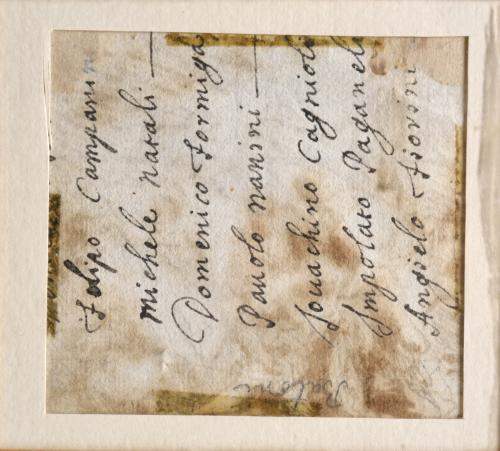 Felipo Campanin
Michele Natali —
Domenico Formiga
Pauolo Nanini —
Jouachino Cagnioli
Impolato Paganeli
Angielo Fiorini
Batoni